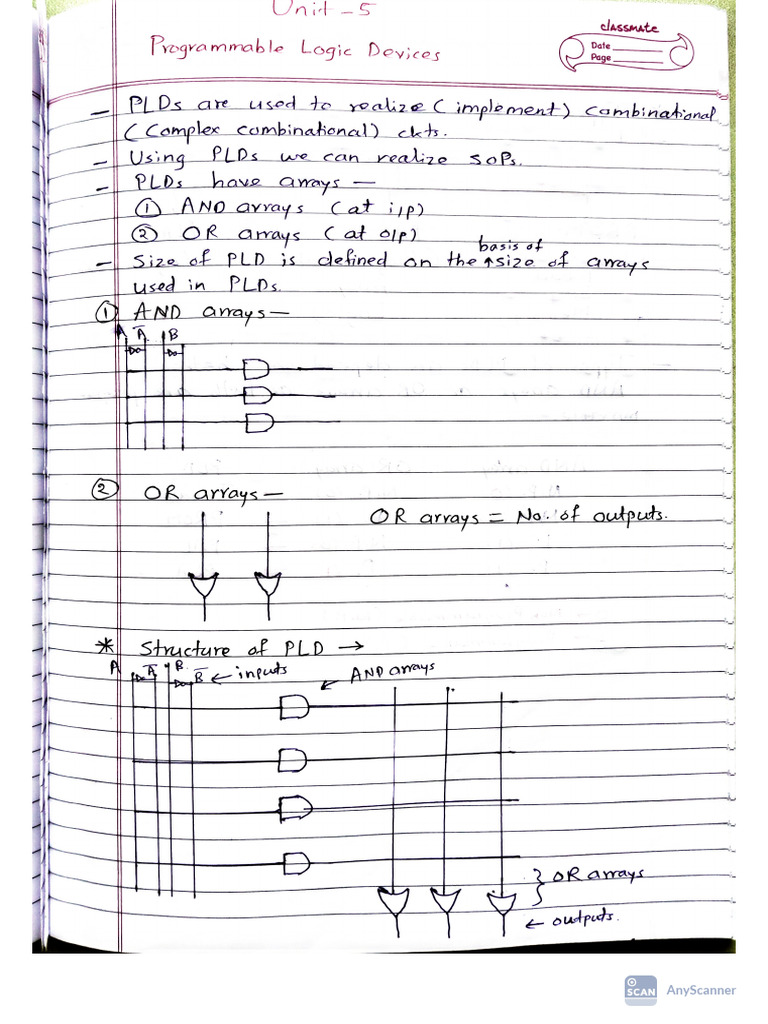 Unit - 5
classmate
Date
Page
Programmable Logic Devices
- PLDs are used to realize (implement) combinational
(Complex combinational) ckts.
- Using PLDs we can realize SOPs.
- PLDs have arrays —
① AND arrays (at i/p)
② OR arrays (at o/p)
basis of
- Size of PLD is defined on the ↑ size of arrays
used in PLDs.
① AND arrays —
A Ā B
② OR arrays —
OR arrays = No. of outputs.
* Structure of PLD →
A Ā B B̄ ← inputs
AND arrays
} OR arrays
← outputs.
SCAN AnyScanner